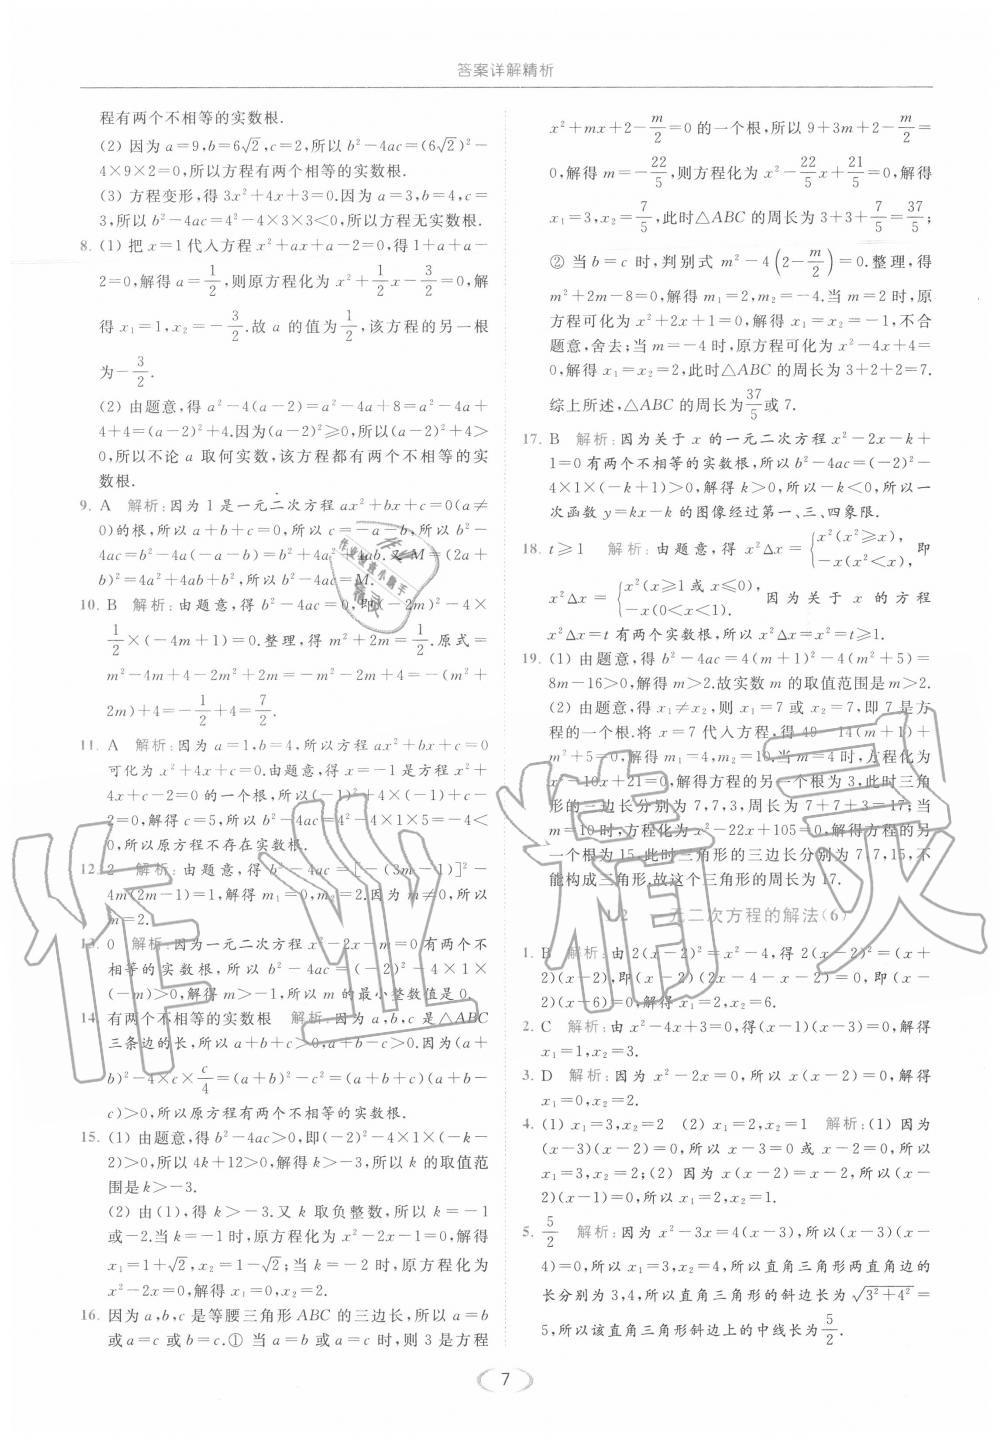 答案详解精析
程有两个不相等的实数根.
(2) 因为 a=9,b=6√2,c=2,所以 b²-4ac=(6√2)²-
4×9×2=0,所以方程有两个相等的实数根.
(3) 方程变形,得 3x²+4x+3=0.因为 a=3,b=4,c=
3,所以 b²-4ac=4²-4×3×3<0,所以方程无实数根.
8. (1) 把 x=1 代入方程 x²+ax+a-2=0,得 1+a+a-
2=0,解得 a=1/2,则原方程化为 x²+1/2x-3/2=0,解
得 x₁=1,x₂=-3/2.故 a 的值为1/2,该方程的另一根
为-3/2.
(2) 由题意,得 a²-4(a-2)=a²-4a+8=a²-4a+
4+4=(a-2)²+4.因为(a-2)²≥0,所以(a-2)²+4>
0,所以不论 a 取何实数,该方程都有两个不相等的实
数根.
9. A 解析:因为 1 是一元二次方程 ax²+bx+c=0(a≠
0)的根,所以 a+b+c=0,所以 c=-a-b,所以 b²-
4ac=b²-4a(-a-b)=b²+4a²+4ab.又 M=(2a+
b)²=4a²+4ab+b²,所以 b²-4ac=M.
10. B 解析:由题意,得 b²-4ac=0,即(-2m)²-4×
1/2×(-4m+1)=0.整理,得 m²+2m=1/2.原式=
m²-4m+4-2m²+2m=-m²-2m+4=-(m²+
2m)+4=-1/2+4=7/2.
11. A 解析:因为 a=1,b=4,所以方程 ax²+bx+c=0
可化为 x²+4x+c=0.由题意,得 x=-1 是方程 x²+
4x+c-2=0 的一个根,所以(-1)²+4×(-1)+c-
2=0,解得 c=5,所以 b²-4ac=4²-4×1×5=-4<
0,所以原方程不存在实数根.
12. 2 解析:由题意,得 b²-4ac=[-(3m-1)]²-
4m(2m-1)=1,解得 m₁=0,m₂=2.因为 m≠0,所以
m=2.
13. 0 解析:因为一元二次方程 x²-2x-m=0 有两个不
相等的实数根,所以 b²-4ac=(-2)²-4×1×
(-m)>0,解得 m>-1,所以 m 的最小整数值是 0.
14. 有两个不相等的实数根 解析:因为 a,b,c 是△ABC
三条边的长,所以 a+b+c>0,a+b-c>0.因为(a+
b)²-4×c×c/4=(a+b)²-c²=(a+b+c)(a+b-
c)>0,所以原方程有两个不相等的实数根.
15. (1) 由题意,得 b²-4ac>0,即(-2)²-4×1×(-k-
2)>0,所以 4k+12>0,解得 k>-3,所以 k 的取值范
围是 k>-3.
(2) 由(1),得 k>-3.又 k 取负整数,所以 k=-1
或-2.当 k=-1 时,原方程化为 x²-2x-1=0,解得
x₁=1+√2,x₂=1-√2;当 k=-2 时,原方程化为
x²-2x=0,解得 x₁=0,x₂=2.
16. 因为 a,b,c 是等腰三角形 ABC 的三边长,所以 a=b
或a=c 或 b=c.① 当 a=b 或a=c 时,则 3 是方程
x²+mx+2-m/2=0 的一个根,所以 9+3m+2-m/2=
0,解得 m=-22/5,则方程化为 x²-22/5x+21/5=0,解得
x₁=3,x₂=7/5,此时△ABC 的周长为 3+3+7/5=37/5;
② 当 b=c 时,判别式 m²-4(2-m/2)=0.整理,得
m²+2m-8=0,解得 m₁=2,m₂=-4.当 m=2 时,原
方程可化为 x²+2x+1=0,解得 x₁=x₂=-1,不合
题意,舍去;当 m=-4 时,原方程可化为 x²-4x+4=
0,解得 x₁=x₂=2,此时△ABC 的周长为 3+2+2=7.
综上所述,△ABC 的周长为37/5或 7.
17. B 解析:因为关于 x 的一元二次方程 x²-2x-k+
1=0 有两个不相等的实数根,所以 b²-4ac=(-2)²-
4×1×(-k+1)>0,解得 k>0,所以-k<0,所以一
次函数 y=kx-k 的图像经过第一、三、四象限.
18. t≥1 解析:由题意,得 x²Δx={x²(x²≥x),-x²(x²<x), 即
x²Δx={x²(x≥1 或 x≤0),-x²(0<x<1). 因为关于 x 的方程
x²Δx=t 有两个实数根,所以 t=x²Δx=x²=t≥1.
19. (1) 由题意,得 b²-4ac=4(m+1)²-4(m²+5)=
8m-16>0,解得 m>2.故实数 m 的取值范围是 m>2.
(2) 由题意,得 x₁≠x₂,则 x₁=7 或 x₂=7,即 7 是方
程的一个根.将 x=7 代入方程,得 49-14(m+1)+
m²+5=0,解得 m₁=4,m₂=10.当 m=4 时,方程化为
x²-10x+21=0,解得方程的另一个根为 3,此时三角
形的三边长分别为 7,7,3,周长为 7+7+3=17;当
m=10 时,方程化为 x²-22x+105=0,解得方程的另
一个根为 15,此时三角形的三边长分别为 7,7,15,不
能构成三角形.故这个三角形的周长为 17.
1.2 一元二次方程的解法(6)
1. B 解析:由 2(x-2)=x²-4,得 2(x-2)=(x+
2)(x-2),即(x-2)(2x-4-x-2)=0,即(x-
2)(x-6)=0,解得 x₁=2,x₂=6.
2. C 解析:由 x²-4x+3=0,得(x-1)(x-3)=0,解得
x₁=1,x₂=3.
3. D 解析:因为 x²-2x=0,所以 x(x-2)=0,解得
x₁=0,x₂=2.
4. (1) x₁=3,x₂=2 (2) x₁=2,x₂=1 解析:(1) 因为
(x-3)(x-2)=0,所以 x-3=0 或 x-2=0,所以
x₁=3,x₂=2;(2) 因为 x(x-2)=x-2,所以
(x-2)(x-1)=0,所以 x₁=2,x₂=1.
5. 5/2 解析:因为 x²-3x=4(x-3),所以(x-3)(x-
4)=0,所以 x₁=3,x₂=4,所以直角三角形两直角边的
长分别为 3,4,所以直角三角形的斜边长为√(3²+4²)=
5,所以该直角三角形斜边上的中线长为5/2.
7
作业精灵
作业检查小助手